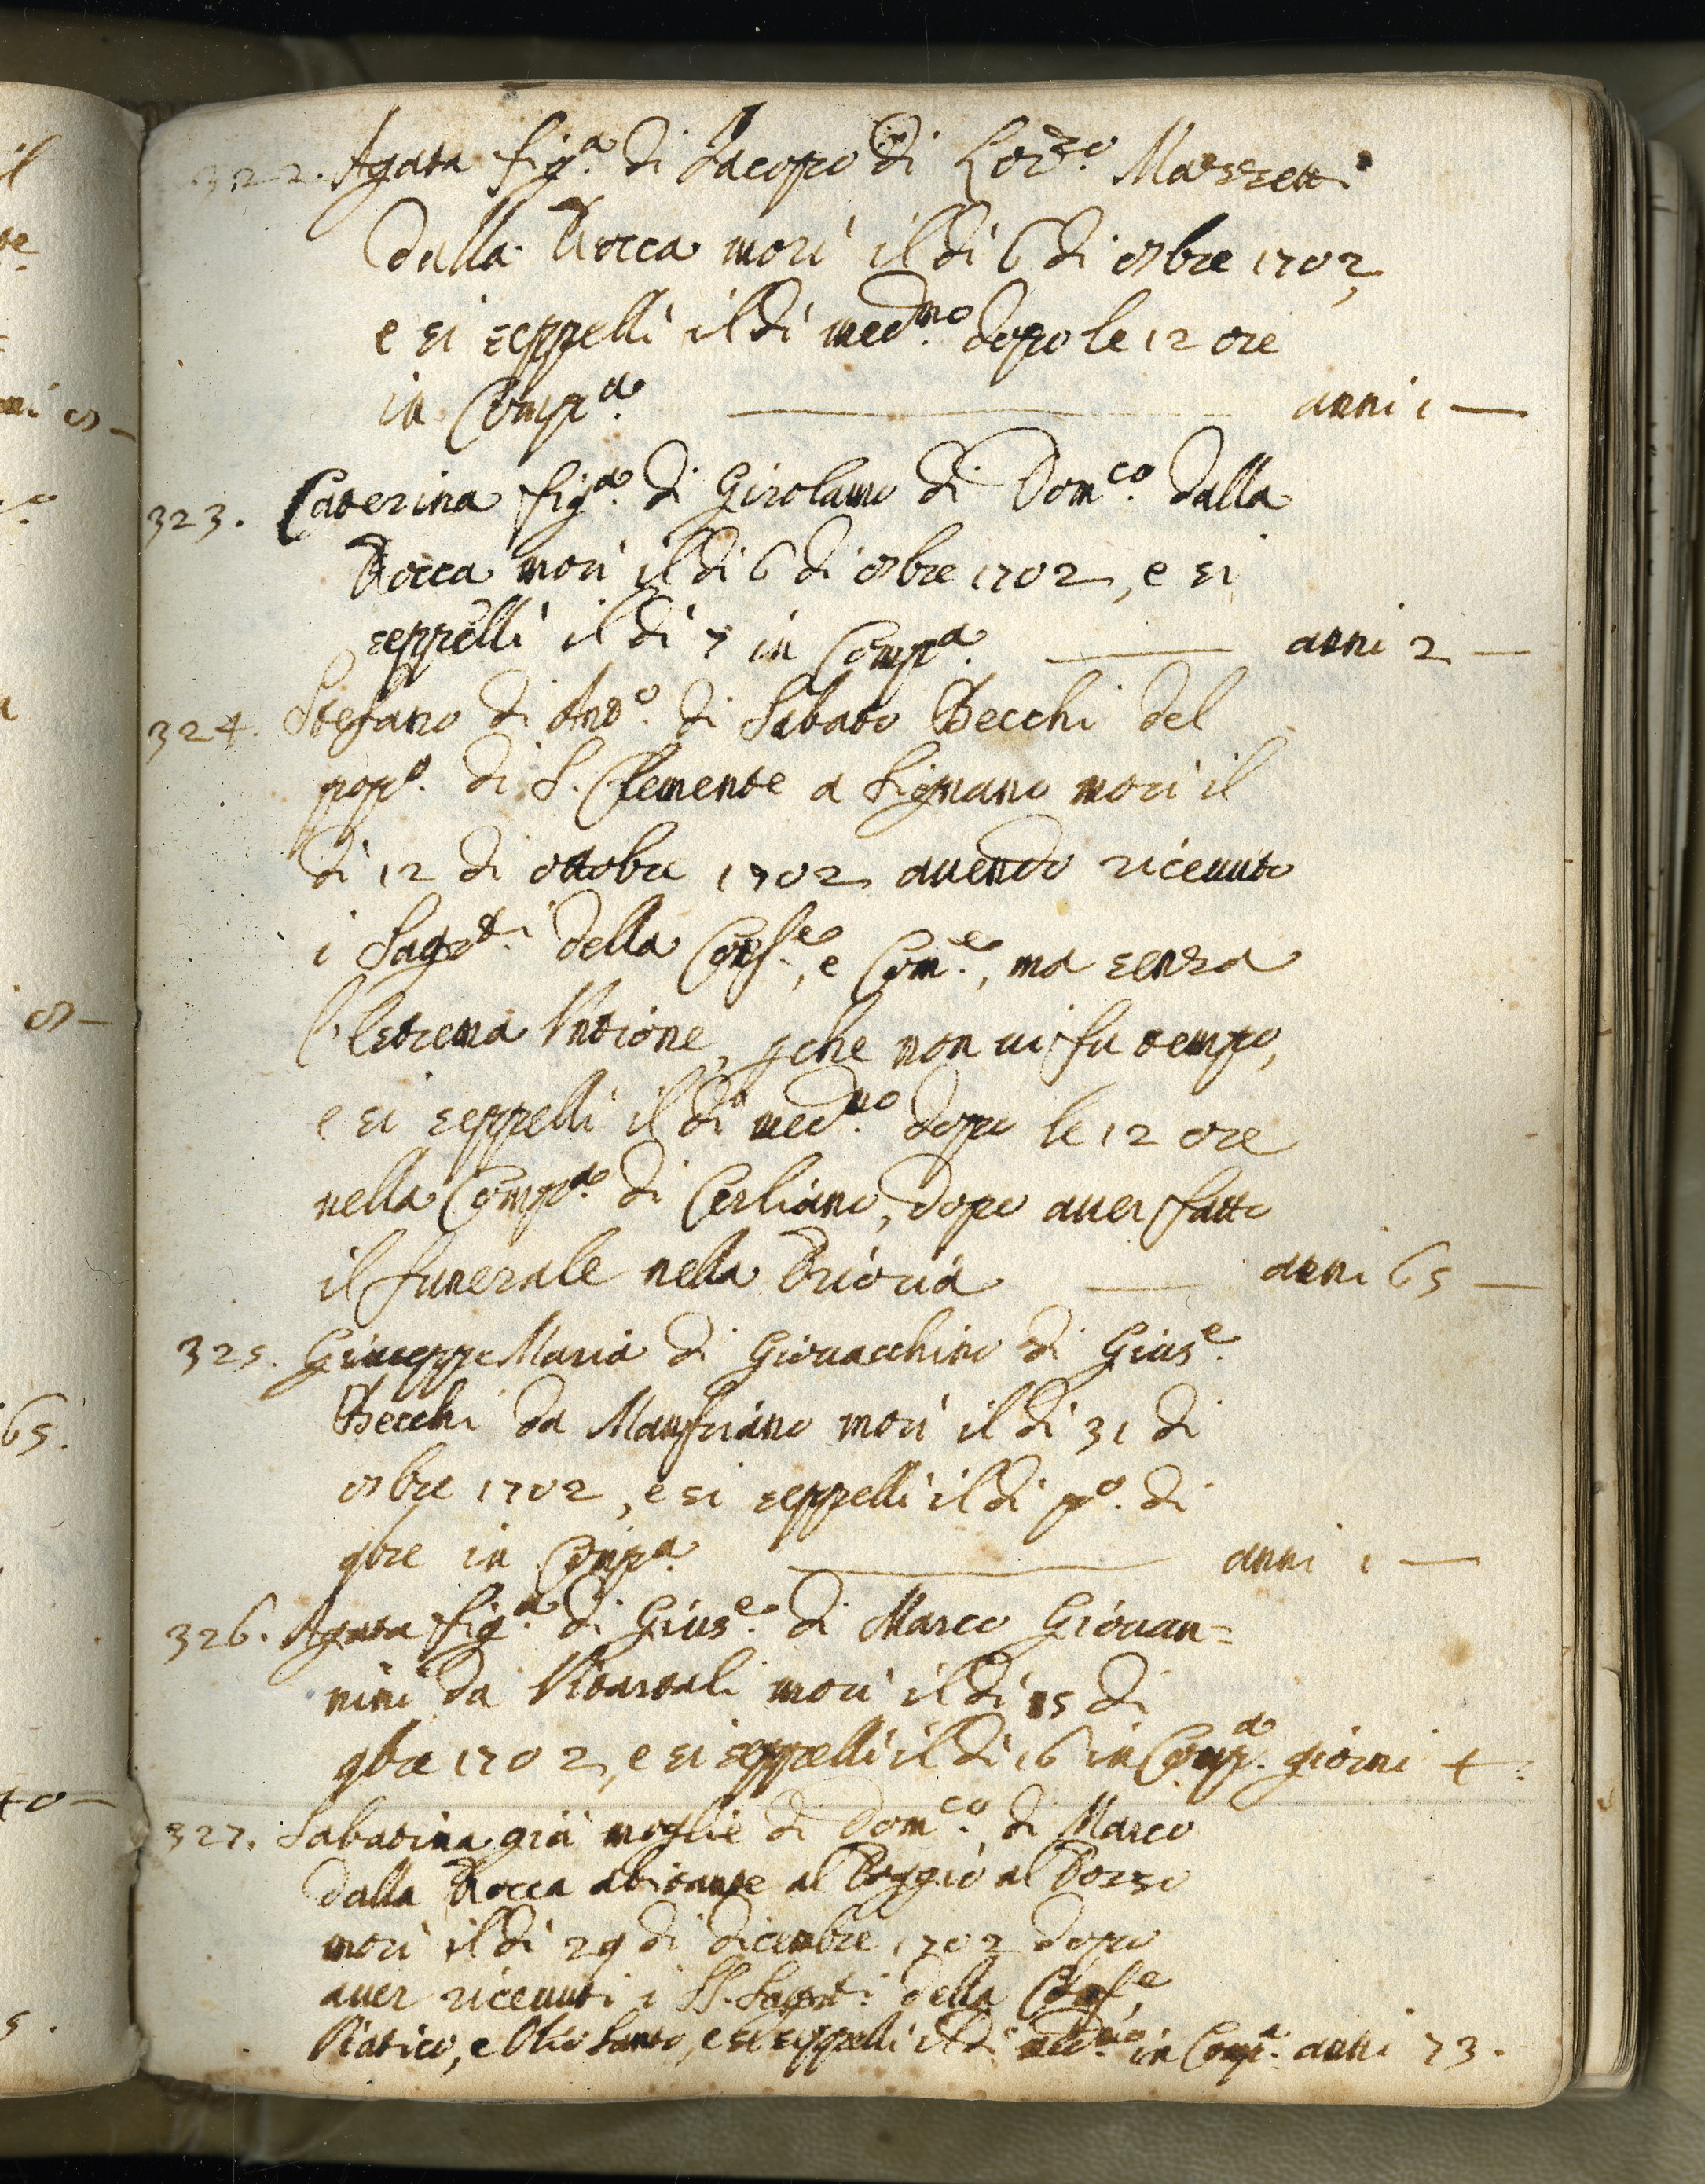 322. Agata fig.a di Jacopo di Lor.zo Mazzetti
dalla Rocca morì il dì 6 di 8bre 1702,
e si seppellì il dì med.mo dopo le 12 ore
in Comp.a — anni 1 —
323. Caterina fig.a di Girolamo di Dom.co dalla
Rocca morì il dì 6 di 8bre 1702, e si
seppellì il dì 7 in Comp.a — anni 2 —
324. Stefano di Ant.o di Sabato Becchi del
pop.o di S. Clemente a Lignano morì il
dì 12 di ottobre 1702 avendo ricevuto
i Sagr.ti della Conf.e, e Com.e, ma senza
l'Estrema Untione, pche non vi fu tempo,
e si seppellì il dì med.mo dopo le 12 ore
nella Comp.a di Cerliano, dopo aver fatto
il funerale nella Prioria — anni 65 —
325. Giuseppe Maria di Giovacchino di Gius.e
Becchi da Manfriano morì il dì 31 di
8bre 1702, e si seppellì il dì p.o di
9bre in Comp.a — anni 1 —
326. Agata fig.a di Gius.e di Marco Giovan=
nini da Vitartali morì il dì 15 di
9bre 1702, e si seppellì il dì 16 in Comp.a giorni 4.
327. Sabatina già moglie di Dom.co di Marco
dalla Rocca abitante al Poggio al Pozzo
morì il dì 29 di dicembre 1702 dopo
aver ricevuti i SS. Sagr.ti della Conf.e,
Viatico, e Olio Santo, e si seppellì il dì med.mo in Comp.a anni 73.